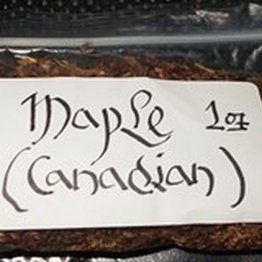 Maple 1oz
(Canadian)